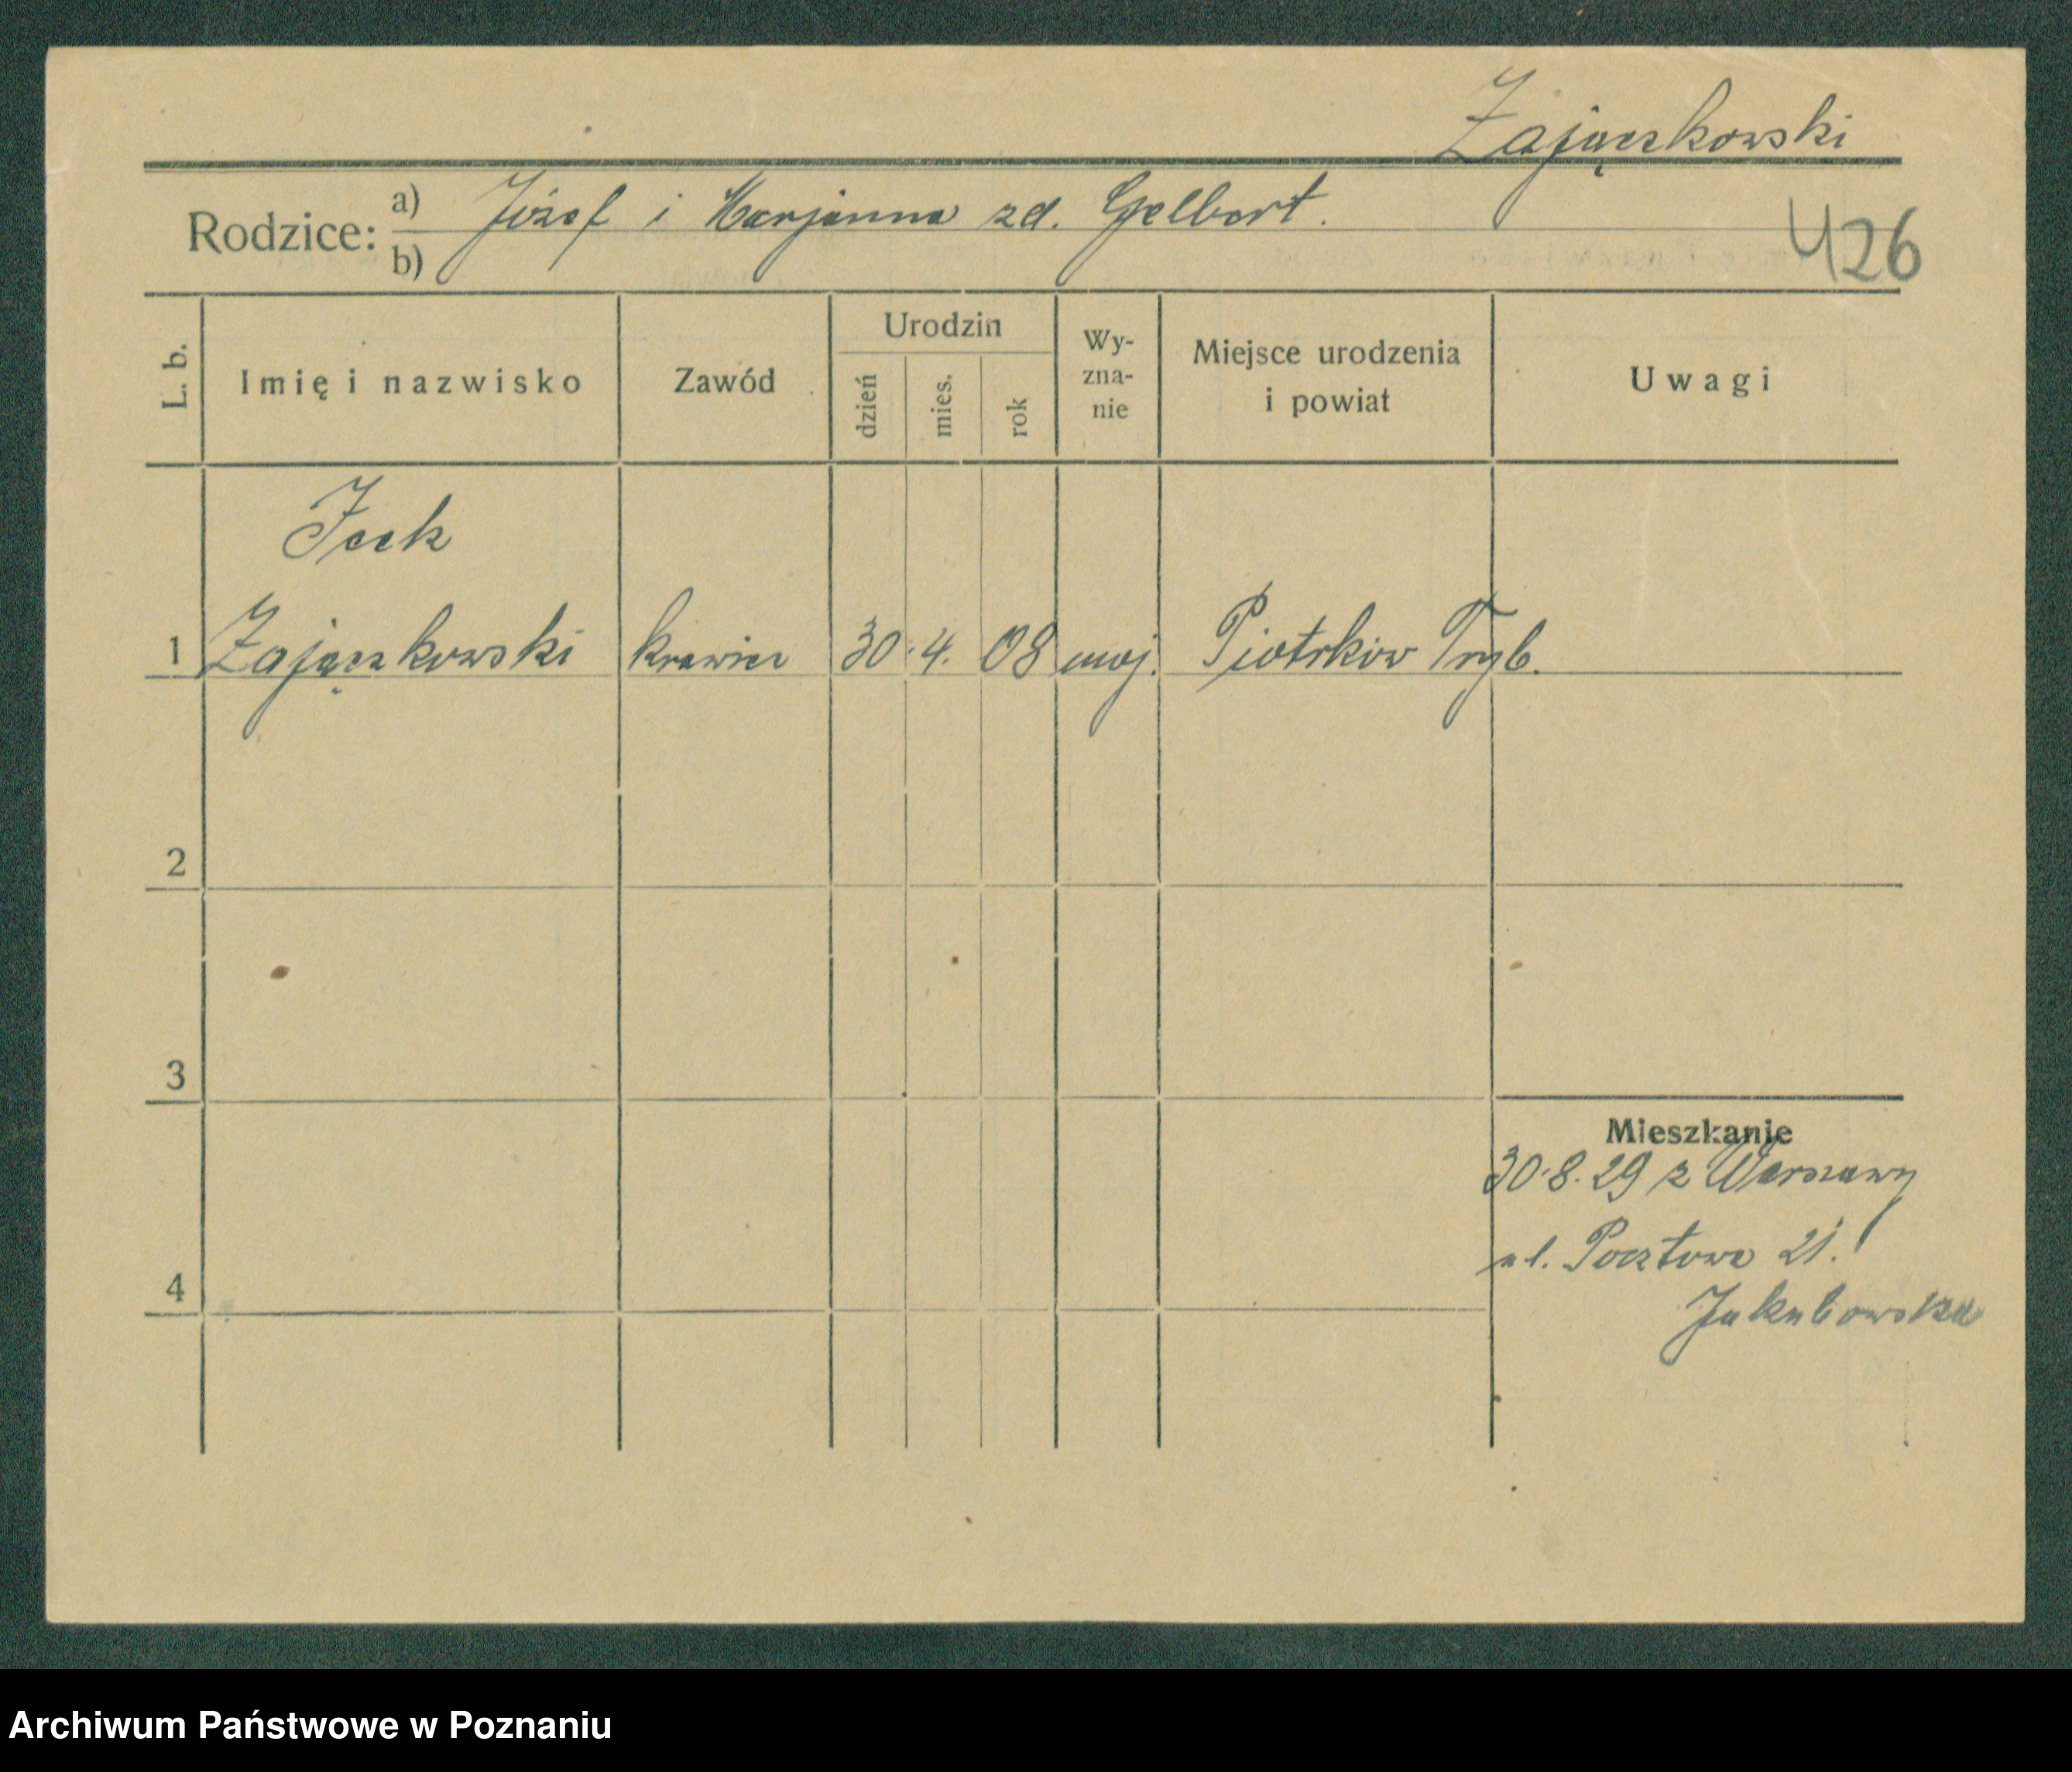 Zajączkowski
Rodzice: a) Józef i Marjanna zd. Gelbart.
b)
426
L. b.
Imię i nazwisko
Zawód
Urodzin
dzień
mies.
rok
Wy-
zna-
nie
Miejsce urodzenia
i powiat
Uwagi
Icek
1 Zajączkowski krawiec 30. 4. 08 moj. Piotrków Tryb.
2
3
Mieszkanie
30.8.29 z Warszawy
ul. Pocztowa 21.
4
Jakubowska
Archiwum Państwowe w Poznaniu